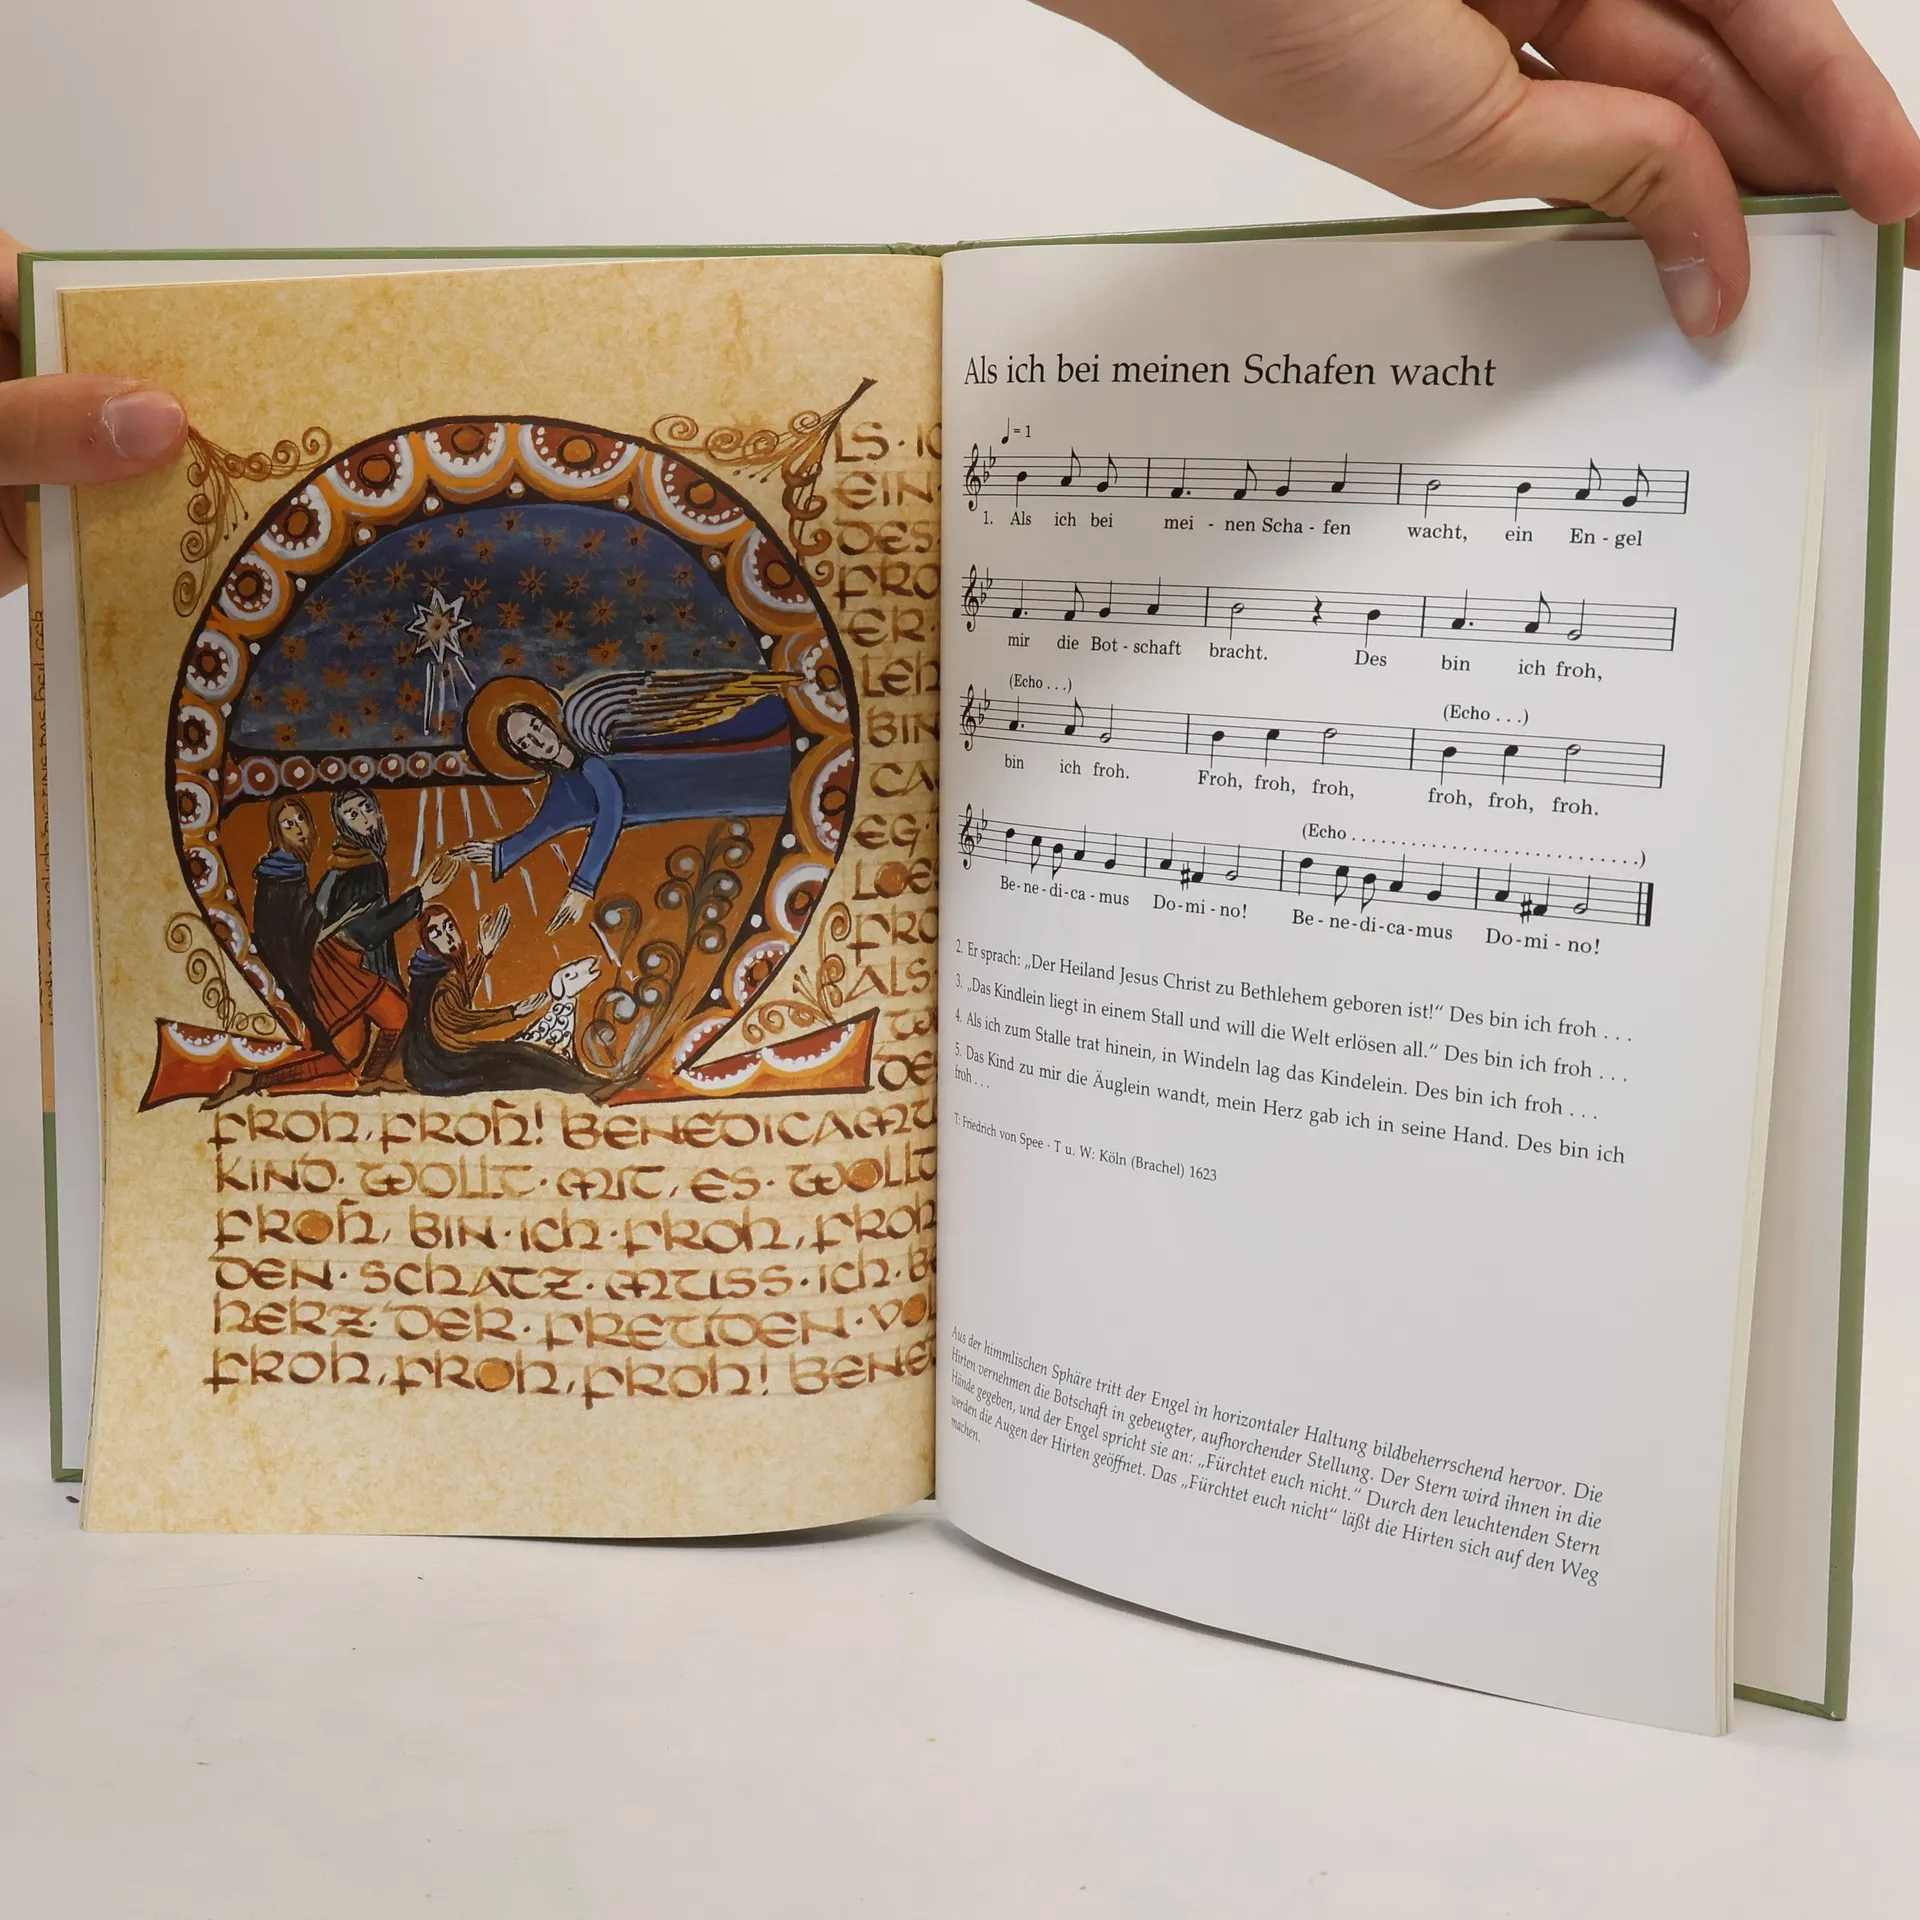 LS · IC
EIN
DES
FRO
ER
LEh
BIN
CA
EG
LOE
FRO
ALS
DE
FROh, FROh! BENEDICAMU
KIND · WOLLT · MIT, ES · WOLLT
FROh, BIN · ICh · FROh, FROh
DEN · SChATZ · MUSS · ICh · BE
hERZ · DER · FREUDEN · VOL
FROh, FROh, FROh! BENE
Als ich bei meinen Schafen wacht
♩ = 1
1. Als ich bei mei - nen Scha - fen wacht, ein En - gel
mir die Bot - schaft bracht. Des bin ich froh,
(Echo . . .) (Echo . . .)
bin ich froh. Froh, froh, froh, froh, froh, froh.
(Echo . . . . . . . . . . . . . . . . . . . . . . . . . . .)
Be - ne - di - ca - mus Do - mi - no! Be - ne - di - ca - mus Do - mi - no!
2. Er sprach: „Der Heiland Jesus Christ zu Bethlehem geboren ist!“ Des bin ich froh . . .
3. „Das Kindlein liegt in einem Stall und will die Welt erlösen all.“ Des bin ich froh . . .
4. Als ich zum Stalle trat hinein, in Windeln lag das Kindelein. Des bin ich froh . . .
5. Das Kind zu mir die Äuglein wandt, mein Herz gab ich in seine Hand. Des bin ich
froh . . .
T: Friedrich von Spee · T u. W: Köln (Brachel) 1623
Aus der himmlischen Sphäre tritt der Engel in horizontaler Haltung bildbeherrschend hervor. Die
Hirten vernehmen die Botschaft in gebeugter, aufhorchender Stellung. Der Stern wird ihnen in die
Hände gegeben, und der Engel spricht sie an: „Fürchtet euch nicht.“ Durch den leuchtenden Stern
werden die Augen der Hirten geöffnet. Das „Fürchtet euch nicht“ läßt die Hirten sich auf den Weg
machen.